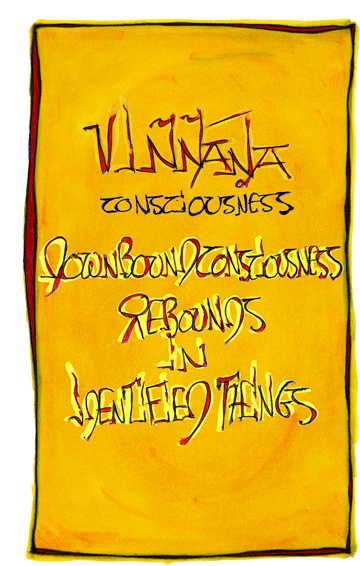 VIÑÑAṆA
CONSCIOUSNESS
DOWNBOUND CONSCIOUSNESS
REBOUNDS
IN
IDENTIFIED THINGS